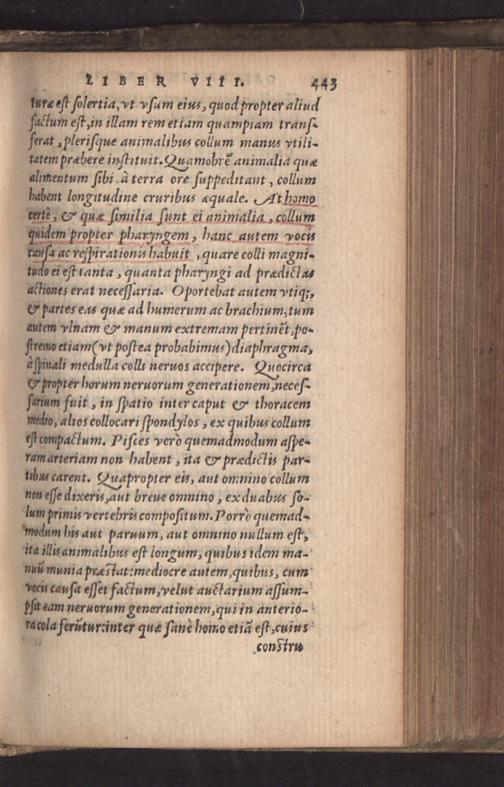 LIBER VIII. 443
turæ est solertia, vt vsum eius, quod propter aliud
factum est, in illam rem etiam quampiam trans-
ferat, plerisque animalibus collum manus vtili-
tatem præbere instituit. Quamobrẽ animalia quæ
alimentum sibi à terra ore suppeditant, collum
habent longitudine cruribus æquale. At homo
certè, & quæ similia sunt ei animalia, collum
quidem propter pharyngem, hanc autem vocis
causa ac respirationis habuit, quare colli magni-
tudo ei est tanta, quanta pharyngi ad prædictas
actiones erat necessaria. Oportebat autem vtiq;,
& partes eas quæ ad humerum ac brachium, tum
autem vlnam & manum extremam pertinẽt, po-
stremo etiam (vt postea probabimus) diaphragma,
à spinali medulla colli neruos accipere. Quocirca
& propter horum neruorum generationem, neces-
sarium fuit, in spatio inter caput & thoracem
medio, alios collocari spondylos, ex quibus collum
est compactum. Pisces verò quemadmodum aspe-
ram arteriam non habent, ita & prædictis par-
tibus carent. Quapropter eis, aut omnino collum
non esse dixeris, aut breue omnino, ex duabus so-
lum primis vertebris compositum. Porrò quemad-
modum his aut paruum, aut omnino nullum est,
ita illis animalibus est longum, quibus idem ma-
nuũ munia præstat: mediocre autem, quibus, cum
vocis causa esset factum, velut auctarium assum-
psit eam neruorum generationem, qui in anterio-
ra cola ferũtur: inter quæ sanè homo etiã est, cuius
constru